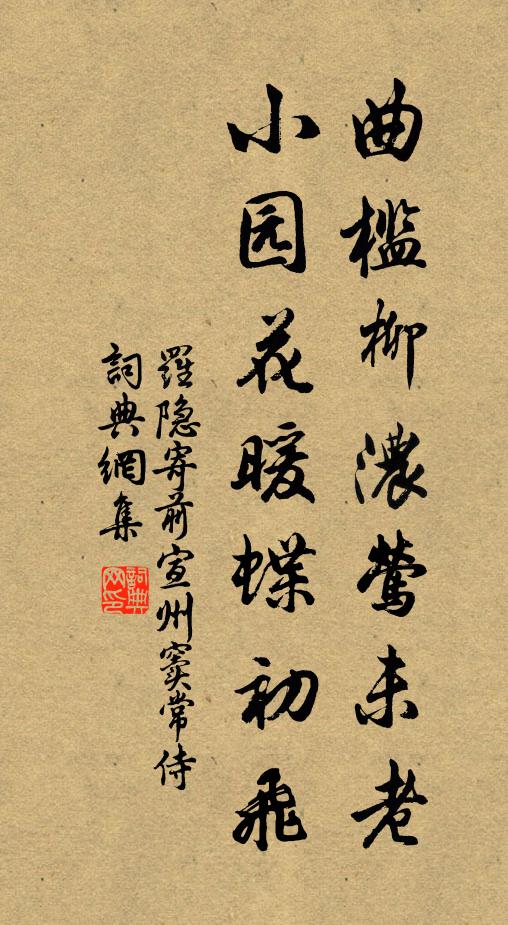 曲槛柳濃鶯未老
小园花暖蝶初飛
羅隐寄前宣州窦常侍
詞典網集
詞典网印